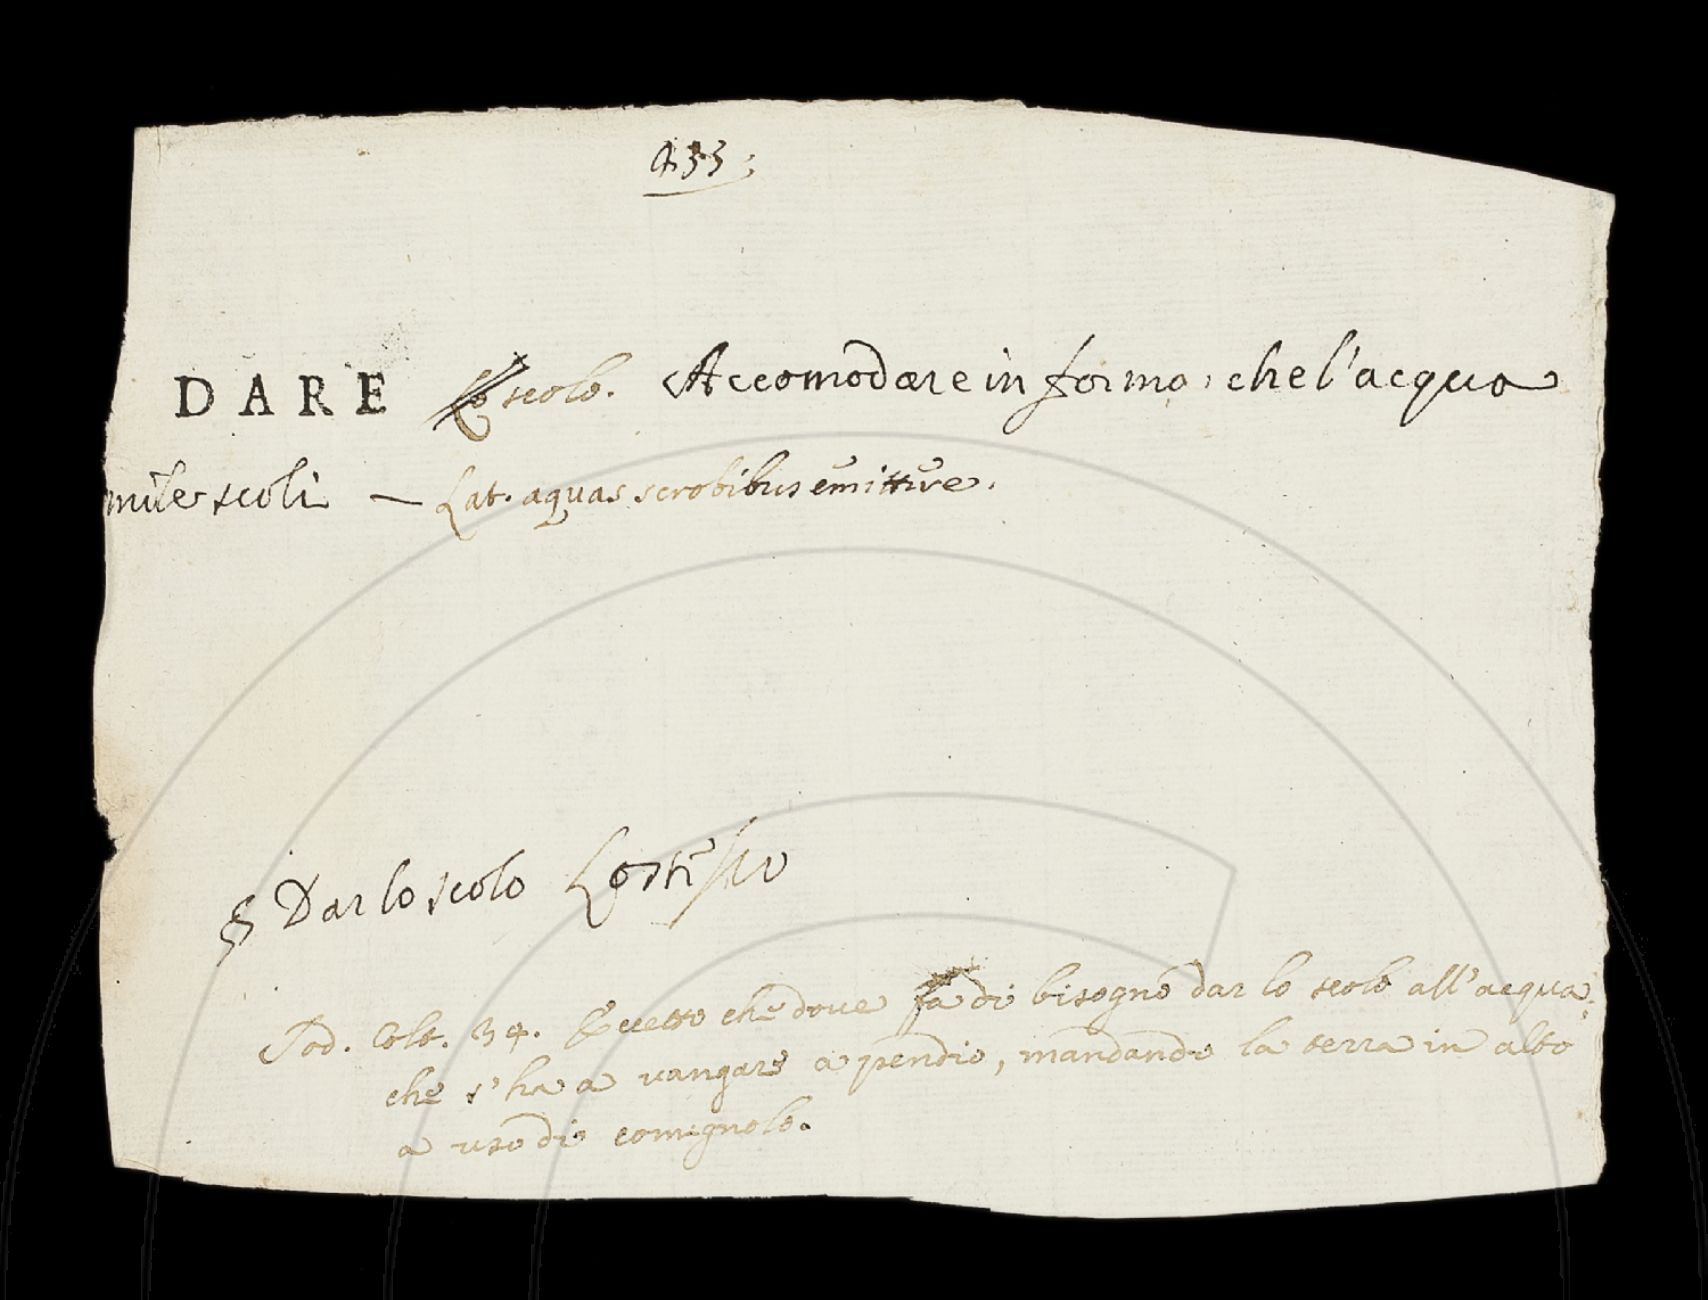 433;
DARE scolo. Accomodare in forma, che l'acqua
scoli — Lat. aquas scrobibus emittere.
§ Dar lo scolo
Sod. Colt. 34. che dove fa di bisogno dar lo scolo all'acqua;
che s'ha a vangare a pendio, mandando la terra in alto
a uso di comignolo.